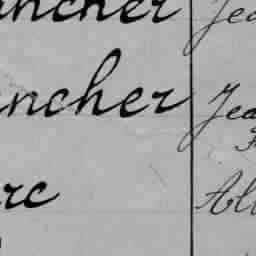 ncher Jea
ncher Jea
rc All